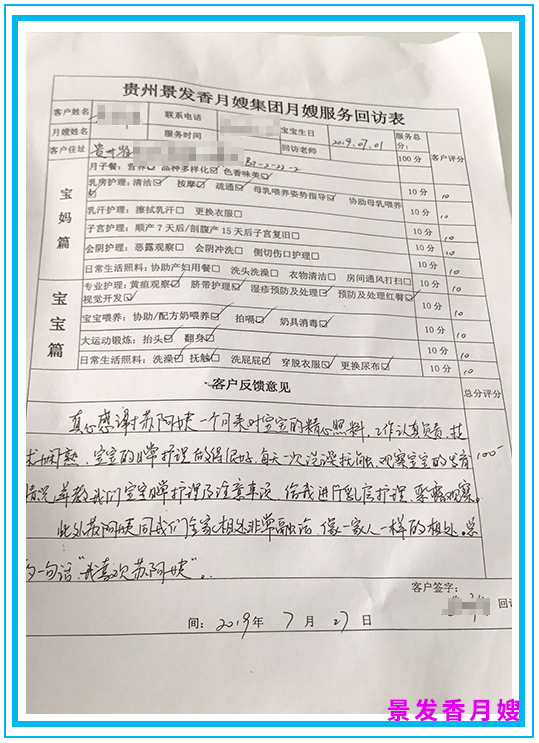 贵州景发香月嫂集团月嫂服务回访表
客户姓名 联系电话 宝宝生日 2019.07.01 服务总分: 客户评分
月嫂姓名 服务时间 回访老师 100分
客户住址 贵州省 B7-2-22-2
月子餐:营养☑ 品种多样化☑ 色香味美☑ 10分 10
宝妈篇
乳房护理:清洁☑ 按摩☑ 疏通☑ 母乳喂养姿势指导☑ 协助母乳喂养☑ 10分 10
乳汗护理:擦拭乳汗□ 更换衣服□ 10分 10
子宫护理:顺产7天后/剖腹产15天后子宫复旧□ 10分 10
会阴护理:恶露观察□ 会阴冲洗□ 侧切伤口护理□ 10分 10
日常生活照料:协助产妇用餐□ 洗头洗澡□ 衣物清洁□ 房间通风打扫□ 10分 10
宝宝篇
专业护理:黄疸观察☑ 脐带护理☑ 湿疹预防及处理☑ 预防及处理红臀☑ 10分 10
视觉开发☑
宝宝喂养:协助/配方奶喂养☑ 拍嗝☑ 奶具消毒☑ 10分 10
大运动锻炼:抬头☑ 翻身☑ 10分 10
日常生活照料:洗澡☑ 抚触☑ 洗屁屁☑ 穿脱衣服☑ 更换尿布☑ 10分 10
客户反馈意见 总分评分
真心感谢苏阿姨一个月来对宝宝的精心照料,工作认真负责,技
术娴熟,宝宝的日常护理做得很好,每天一次洗澡抚触、观察宝宝的发育 100
情况,并教我们宝宝日常护理及注意事项,给我进行乳房护理、恶露观察。
此外苏阿姨同我们全家相处非常融洽,像一家人一样的相处。总
一句话"我喜欢苏阿姨"。
客户签字:
回访
间:2019年7月27日
景发香月嫂